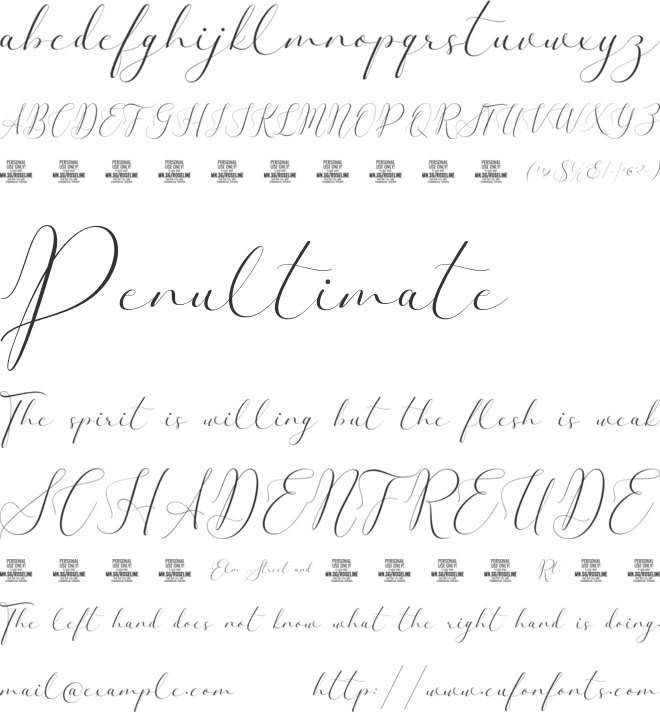 abcdefghijklmnopqrstuvwxyz
ABCDEFGHIJKLMNOPQRSTUVWXYZ
PERSONAL USE ONLY! MN.SG/ROSELINE PERSONAL USE ONLY! MN.SG/ROSELINE PERSONAL USE ONLY! MN.SG/ROSELINE PERSONAL USE ONLY! MN.SG/ROSELINE PERSONAL USE ONLY! MN.SG/ROSELINE PERSONAL USE ONLY! MN.SG/ROSELINE PERSONAL USE ONLY! MN.SG/ROSELINE PERSONAL USE ONLY! MN.SG/ROSELINE PERSONAL USE ONLY! MN.SG/ROSELINE PERSONAL USE ONLY! MN.SG/ROSELINE
Penultimate
The spirit is willing but the flesh is weak
SCHADENFREUDE
PERSONAL USE ONLY! MN.SG/ROSELINE PERSONAL USE ONLY! MN.SG/ROSELINE PERSONAL USE ONLY! MN.SG/ROSELINE PERSONAL USE ONLY! MN.SG/ROSELINE Elm Street and PERSONAL USE ONLY! MN.SG/ROSELINE PERSONAL USE ONLY! MN.SG/ROSELINE PERSONAL USE ONLY! MN.SG/ROSELINE PERSONAL USE ONLY! MN.SG/ROSELINE Rt. PERSONAL USE ONLY! MN.SG/ROSELINE PERSONAL USE ONLY! MN.SG/ROSELINE
The left hand does not know what the right hand is doing.
mail@example.com http://www.cufonfonts.com